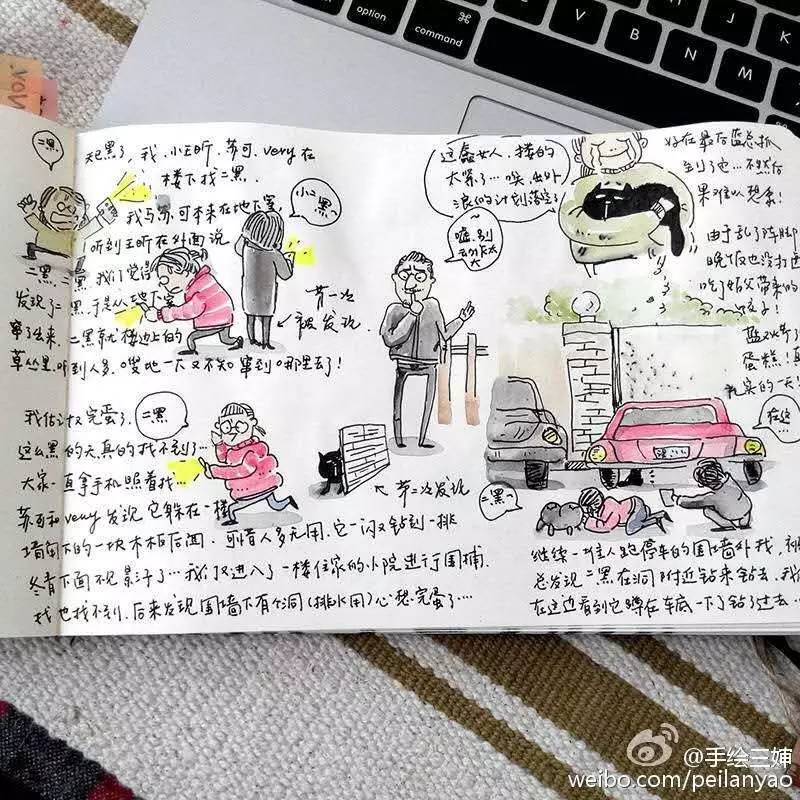 option
command
⌘
command
option
二黑
天已黑了，我、小王昕、苏可、very在
楼下找二黑.
我与苏可本来在地下室，
听到王昕在外面说
二黑，二黑，我们觉得
发现了二黑，于是从地下室
窜了出来，二黑就楼边上的
草丛里，听到人多，嗖地一下又不知窜到哪里去了！
小二黑~
第一次
被发现.
这蠢女人，搂的
太紧了…唉，出外
浪的计划落空了
嘘，别
动作太大
好在最后蓝总抓
到了它…不然后
果难以想象！
由于乱了阵脚
晚饭也没打
吃了
带来的
蛋糕！
实的一天！
在这…
我估计又完蛋了.
这么黑的天真的找不到了…
大家一直拿手机照着找…
苏可和very发现它躲在一楼
墙角下的一块木板后面. 可惜人多无用，它一闪又钻到一排
冬青下面不见影子了…我们又进入了一楼住家的小院进行围捕.
找也找不到. 后来发现围墙下有个洞（排水用）心想完蛋了…
二黑
↖ 第二次发现
二黑~
继续一堆人跑停车的围墙外找，
总发现二黑在洞附近钻来钻去，我
在这边看到它蹲在车底一下子钻了过去…
@手绘三婶
weibo.com/peilanyao